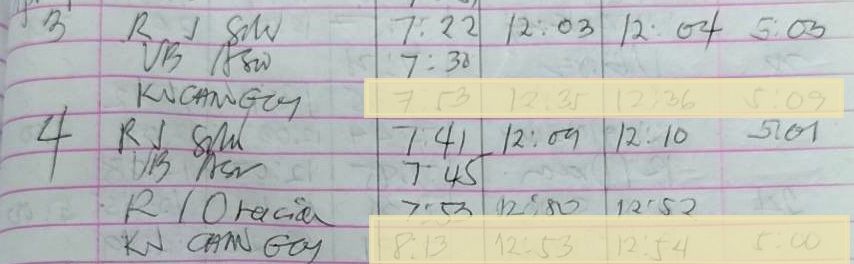 3 R J 7:22 12:03 12:04 5:03
VB 7:30
KN CANGCY 7:53 12:35 12:36 5:09
4 R J 7:41 12:09 12:10 5:01
VB 7:45
R / Oracion 7:53 12:50 12:52
KN CANGCY 8:13 12:53 12:54 5:00